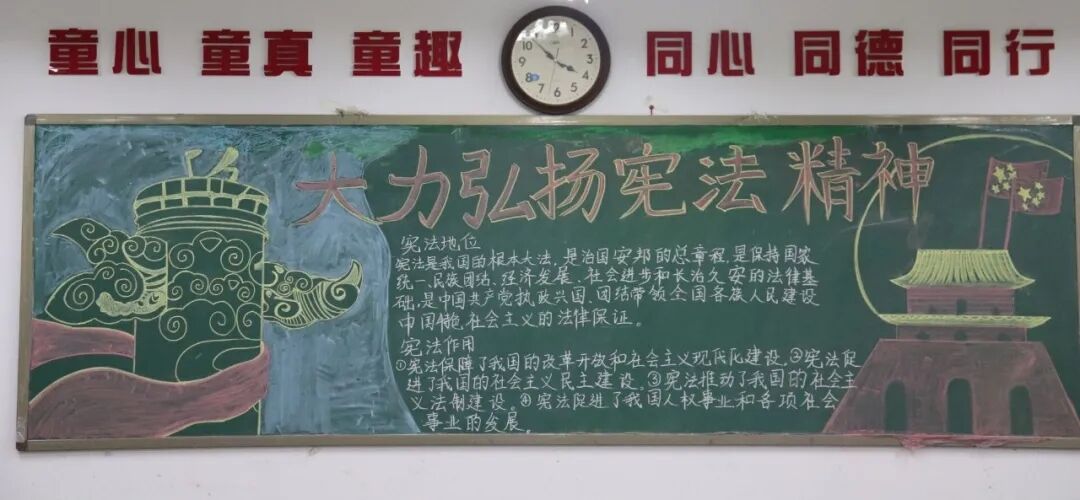 童心 童真 童趣
同心 同德 同行
大力弘扬宪法精神
宪法地位
宪法是我国的根本大法,是治国安邦的总章程,是保持国家
统一、民族团结、经济发展、社会进步和长治久安的法律基
础,是中国共产党执政兴国、团结带领全国各族人民建设
中国特色社会主义的法律保证。
宪法作用
①宪法保障了我国的改革开放和社会主义现代化建设。②宪法促
进了我国的社会主义民主建设。③宪法推动了我国的社会主
义法制建设。④宪法促进了我国人权事业和各项社会
事业的发展。